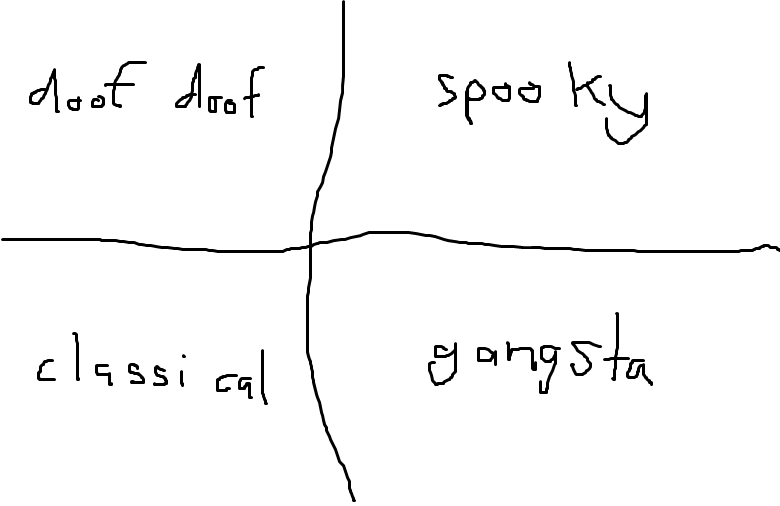 doof doof
spooky
classical
gangsta